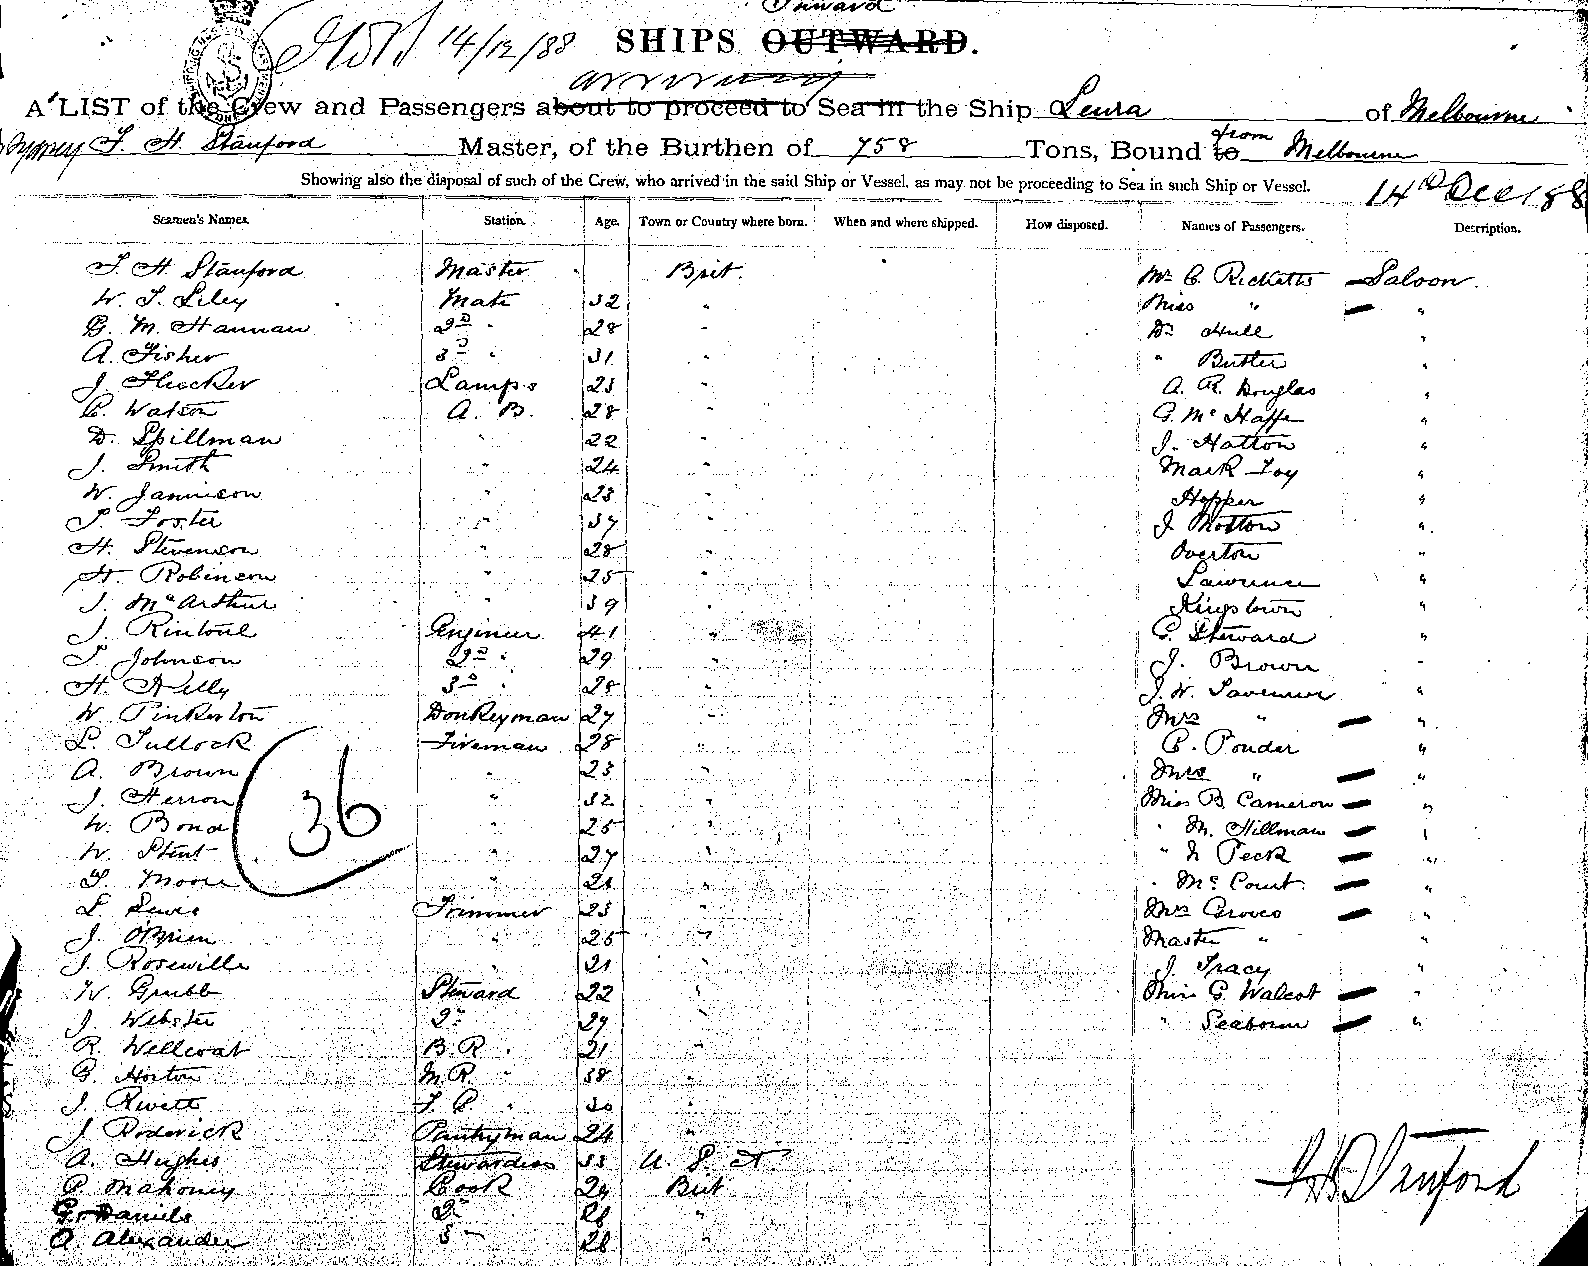 Inward
14/12/88 SHIPS OUTWARD.
arriving
A LIST of the Crew and Passengers about to proceed to Sea in the Ship Leura of Melbourne
Sydney T. H. Stanford Master, of the Burthen of 758 Tons, Bound to from Melbourne
Showing also the disposal of such of the Crew, who arrived in the said Ship or Vessel, as may not be proceeding to Sea in such Ship or Vessel.
14th Dec 188
Seamen's Names. Station. Age. Town or Country where born. When and where shipped. How disposed. Names of Passengers. Description.
T. H. Stanford Master Brit. Mr C. Ricketts Saloon
W. T. Liley Mate 32 " Miss " "
G. M. Hannan 2nd " 28 " Dr Hull "
A. Fisher 3rd " 31 " " Butler "
J. Flucker Lamps 23 " A. R. Douglas "
C. Watson A. B. 28 " G. Mc Haffie "
D. Spillman " 22 " J. Hatton "
J. Smith " 24 " Mark Foy "
W. Jamieson " 23 " Hopper "
T. Foster " 37 " J. Motton "
H. Stevenson " 28 " Overton "
H. Robinson " 25 " Lawrence "
J. McArthur " 39 " Kingstown "
J. Rintoul Engineer 41 " C. Steward "
T. Johnson 2nd " 29 " J. Brown "
H. Kelly 3rd " 28 " J. W. Taverner "
W. Pinkerton Donkeyman 27 " Mrs " "
L. Tullock Fireman 28 " C. Ponder "
A. Brown " 23 " Mrs " "
J. Herron " 32 " Miss B. Cameron "
W. Bond " 25 " " M. Hillman "
36
W. Stent " 27 " " N Peck "
T. Moore " 21 " " Mc Court "
L. Lewis Trimmer 23 " Mrs Groves "
J. O'Brien " 25 " Master " "
J. Rosewille " 21 " J. Tracy "
W. Grubb Steward 22 " Miss C. Walcot "
J. Webster 2nd 27 " " Seaborn "
R. Wellcoat B.R. " 21 "
G. Horton M.R. " 38 "
J. Kwett F. C. " 30 "
J. Roderick Pantryman 24 "
A. Hughes Stewardess 33 U. S. A.
P. Mahoney Cook 29 Brit
G. Daniels 2nd 28 "
A. Alexander 3 28 "
T H Stanford